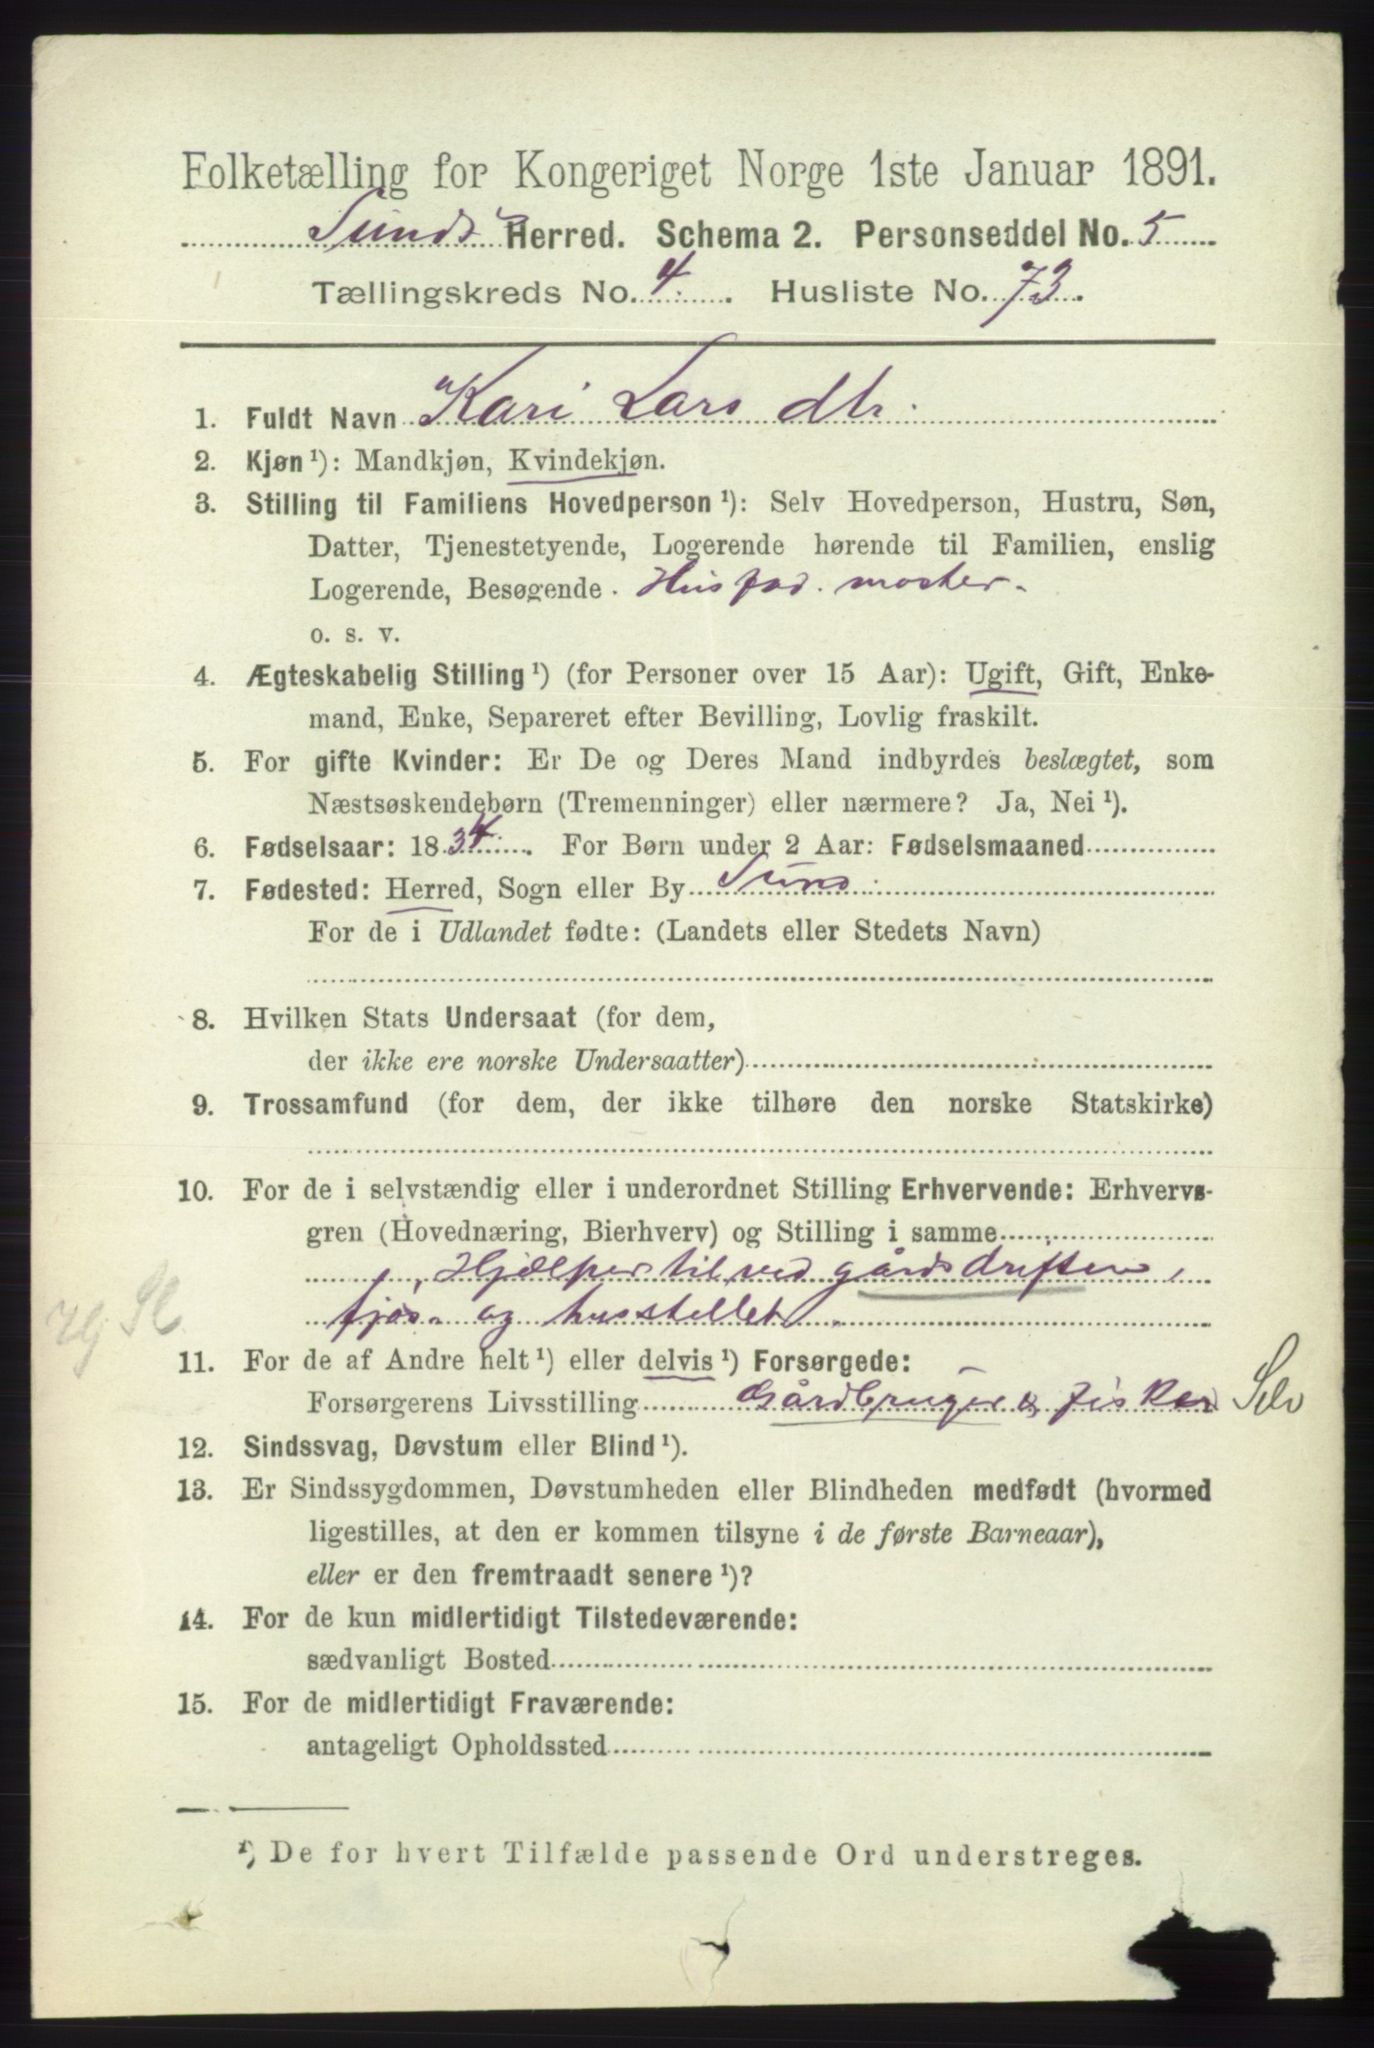 Folketælling for Kongeriget Norge 1ste Januar 1891.
Sunds Herred. Schema 2. Personseddel No. 5
Tællingskreds No. 4. Husliste No. 73.
1. Fuldt Navn Kari Lars dtr.
2. Kjøn ¹): Mandkjøn, Kvindekjøn.
3. Stilling til Familiens Hovedperson ¹): Selv Hovedperson, Hustru, Søn,
Datter, Tjenestetyende, Logerende hørende til Familien, enslig
Logerende, Besøgende. Husfad. moster.
o. s. v.
4. Ægteskabelig Stilling ¹) (for Personer over 15 Aar): Ugift, Gift, Enke-
mand, Enke, Separeret efter Bevilling, Lovlig fraskilt.
5. For gifte Kvinder: Er De og Deres Mand indbyrdes beslægtet, som
Næstsøskendebørn (Tremenninger) eller nærmere? Ja, Nei ¹).
6. Fødselsaar: 1834. For Børn under 2 Aar: Fødselsmaaned
7. Fødested: Herred, Sogn eller By Sund.
For de i Udlandet fødte: (Landets eller Stedets Navn)
8. Hvilken Stats Undersaat (for dem,
der ikke ere norske Undersaatter)
9. Trossamfund (for dem, der ikke tilhøre den norske Statskirke)
10. For de i selvstændig eller i underordnet Stilling Erhvervende: Erhvervs-
gren (Hovednæring, Bierhverv) og Stilling i samme
Hjælper til ved gårdsdriften,
fjøs- og husstellet.
11. For de af Andre helt ¹) eller delvis ¹) Forsørgede:
Forsørgerens Livsstilling Gårdbruger & fisker Selv
12. Sindssvag, Døvstum eller Blind ¹).
13. Er Sindssygdommen, Døvstumheden eller Blindheden medfødt (hvormed
ligestilles, at den er kommen tilsyne i de første Barneaar),
eller er den fremtraadt senere ¹)?
14. For de kun midlertidigt Tilstedeværende:
sædvanligt Bosted
15. For de midlertidigt Fraværende:
antageligt Opholdssted
¹) De for hvert Tilfælde passende Ord understreges.